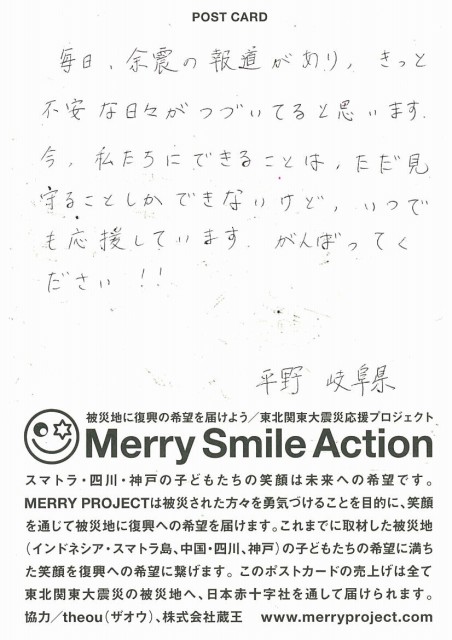 POST CARD
毎日、余震の報道があり、きっと
不安な日々がつづいてると思います.
今、私たちにできることは、ただ見
守ることしかできないけど、いつで
も応援しています. がんばってく
ださい!!
平野 岐阜県
被災地に復興の希望を届けよう／東北関東大震災応援プロジェクト
Merry Smile Action
スマトラ・四川・神戸の子どもたちの笑顔は未来への希望です。
MERRY PROJECTは被災された方々を勇気づけることを目的に、笑顔
を通じて被災地に復興への希望を届けます。これまでに取材した被災地
（インドネシア・スマトラ島、中国・四川、神戸）の子どもたちの希望に満ち
た笑顔を復興への希望に繋げます。このポストカードの売上げは全て
東北関東大震災の被災地へ、日本赤十字社を通して届けられます。
協力／theou（ザオウ）、株式会社蔵王 www.merryproject.com